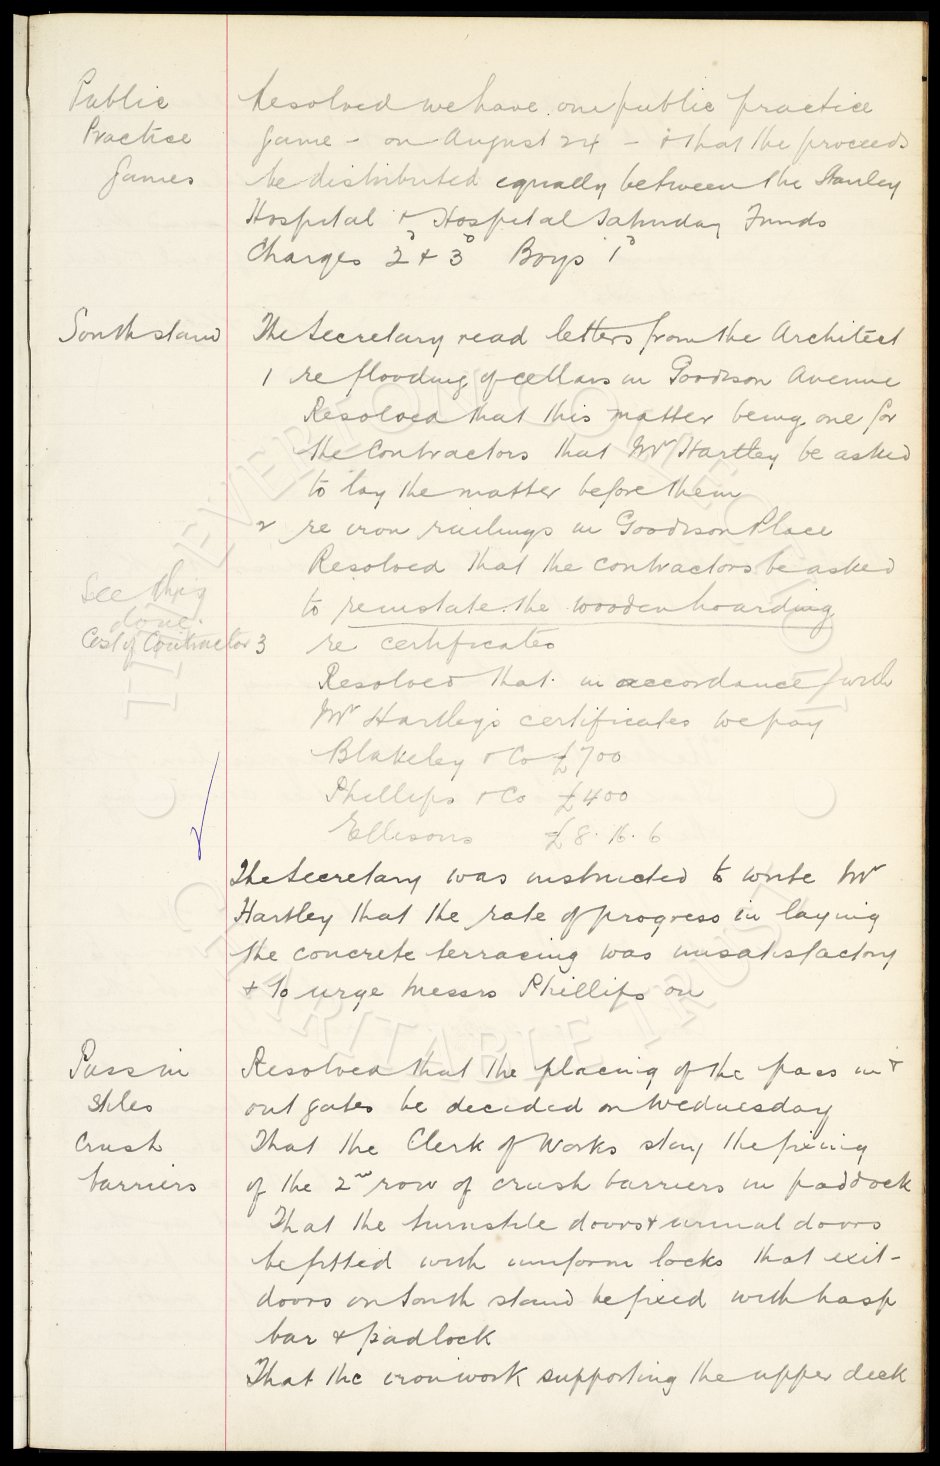 Public
Practice
Games
Resolved we have one public practice
game - on August 24 - & that the proceeds
be distributed equally between the Stanley
Hospital & Hospital Saturday Funds
Charges 2d & 3d Boys 1d
South stand
The Secretary read letters from the Architect
1 re flooding of cellars in Goodison Avenue
Resolved that this matter being one for
the Contractors that Mr Hartley be asked
to lay the matter before them
2 re iron railings in Goodison Place
Resolved that the contractors be asked
to reinstate the wooden hoarding
See this
done.
Cost of Contractor
3 re certificates
Resolved that in accordance with
Mr Hartley's certificates we pay
Blakeley & Co £700
Phillips & Co £400
Ellisons £8.16.6
The Secretary was instructed to write Mr
Hartley that the rate of progress in laying
the concrete terracing was unsatisfactory
& to urge Messrs Phillips on
Pass in
Stiles
Crush
barriers
Resolved that the placing of the pass in &
out gates be decided on Wednesday
That the Clerk of Works stay the fixing
of the 2nd row of crush barriers in paddock
That the turnstile doors & urinal doors
be fitted with uniform locks that exit-
doors on South stand be fixed with hasp
bar & padlock
That the ironwork supporting the upper deck
THE EVERTON COLLECTION
CHARITABLE TRUST